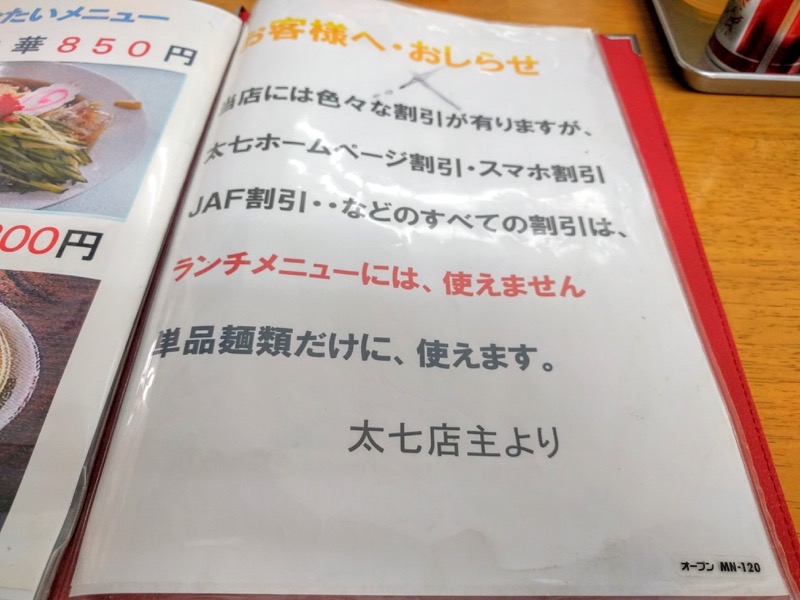 たいメニュー
華 850円
00円
お客様へ・おしらせ
当店には色々な割引が有りますが、
太七ホームページ割引・スマホ割引
JAF割引・・などのすべての割引は、
ランチメニューには、使えません
単品麺類だけに、使えます。
太七店主より
オープン MN-120